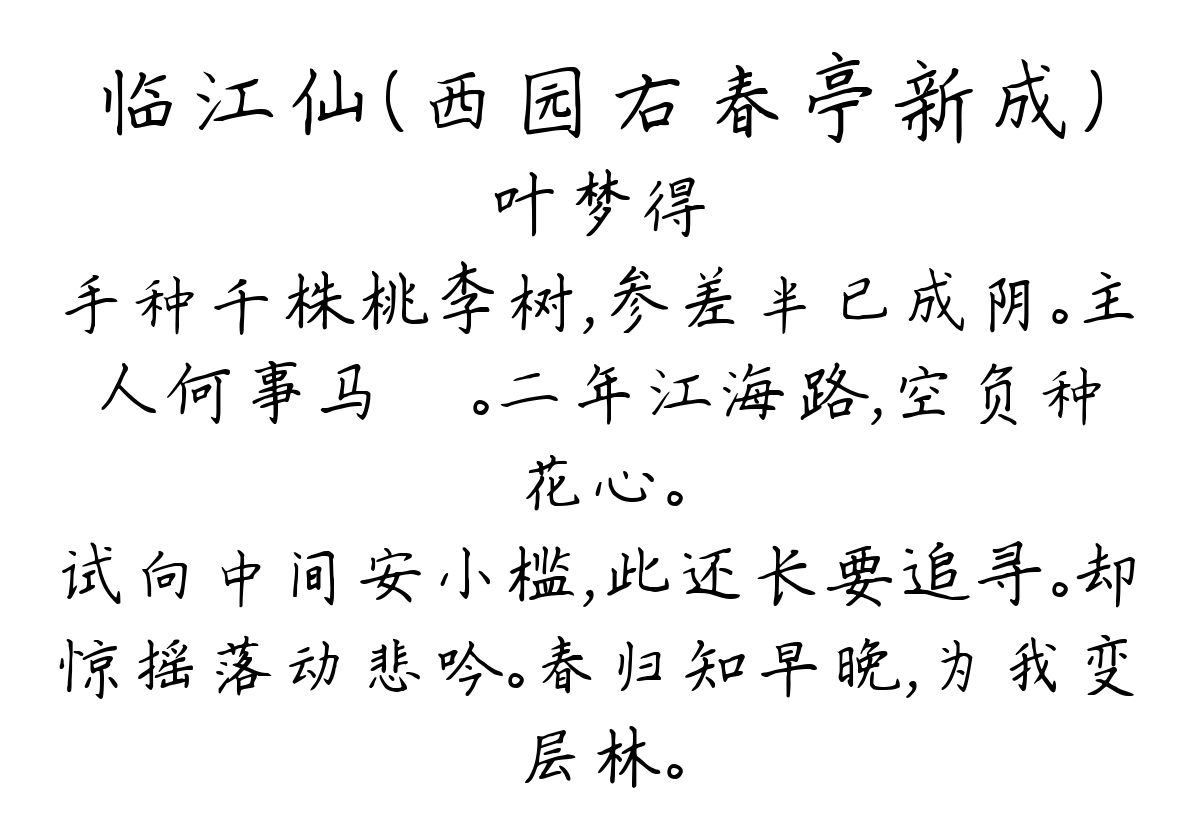 临江仙(西园右春亭新成)
叶梦得
手种千株桃李树,参差半已成阴。主
人何事马 。二年江海路,空负种
花心。
试向中间安小槛,此还长要追寻。却
惊摇落动悲吟。春归知早晚,为我变
层林。